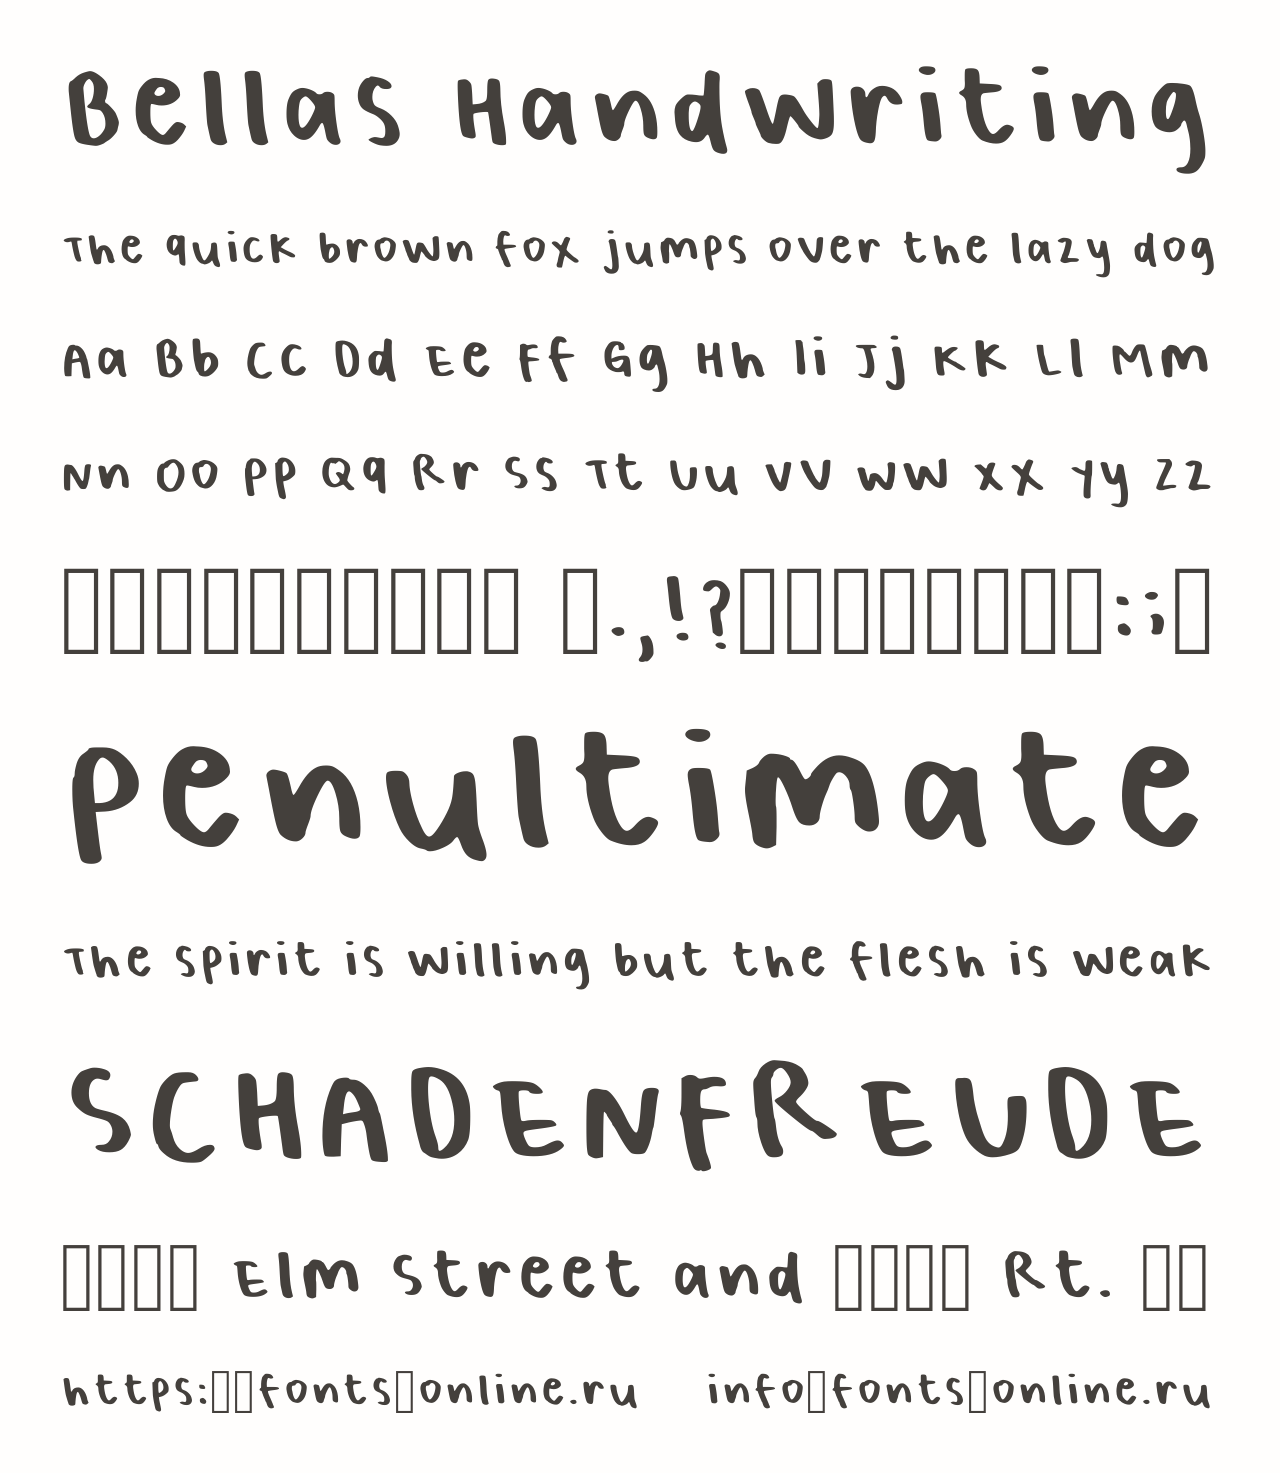 Bellas Handwriting
The quick brown fox jumps over the lazy dog
Aa Bb Cc Dd Ee Ff Gg Hh Ii Jj Kk Ll Mm
Nn Oo Pp Qq Rr Ss Tt Uu Vv Ww Xx Yy Zz
▯▯▯▯▯▯▯▯▯▯ ▯.,!?▯▯▯▯▯▯▯▯:;▯
Penultimate
The spirit is willing but the flesh is weak
SCHADENFREUDE
▯▯▯▯ Elm Street and ▯▯▯▯ Rt. ▯▯
https:▯▯fonts▯online.ru info▯fonts▯online.ru